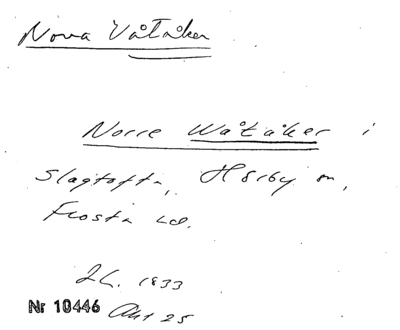 Norra Våtåker
Norre Wåtåker i
Slagtofta, Hörby sn,
Frosta hd.
Lk. 1833
Nr 10446 Akt 25